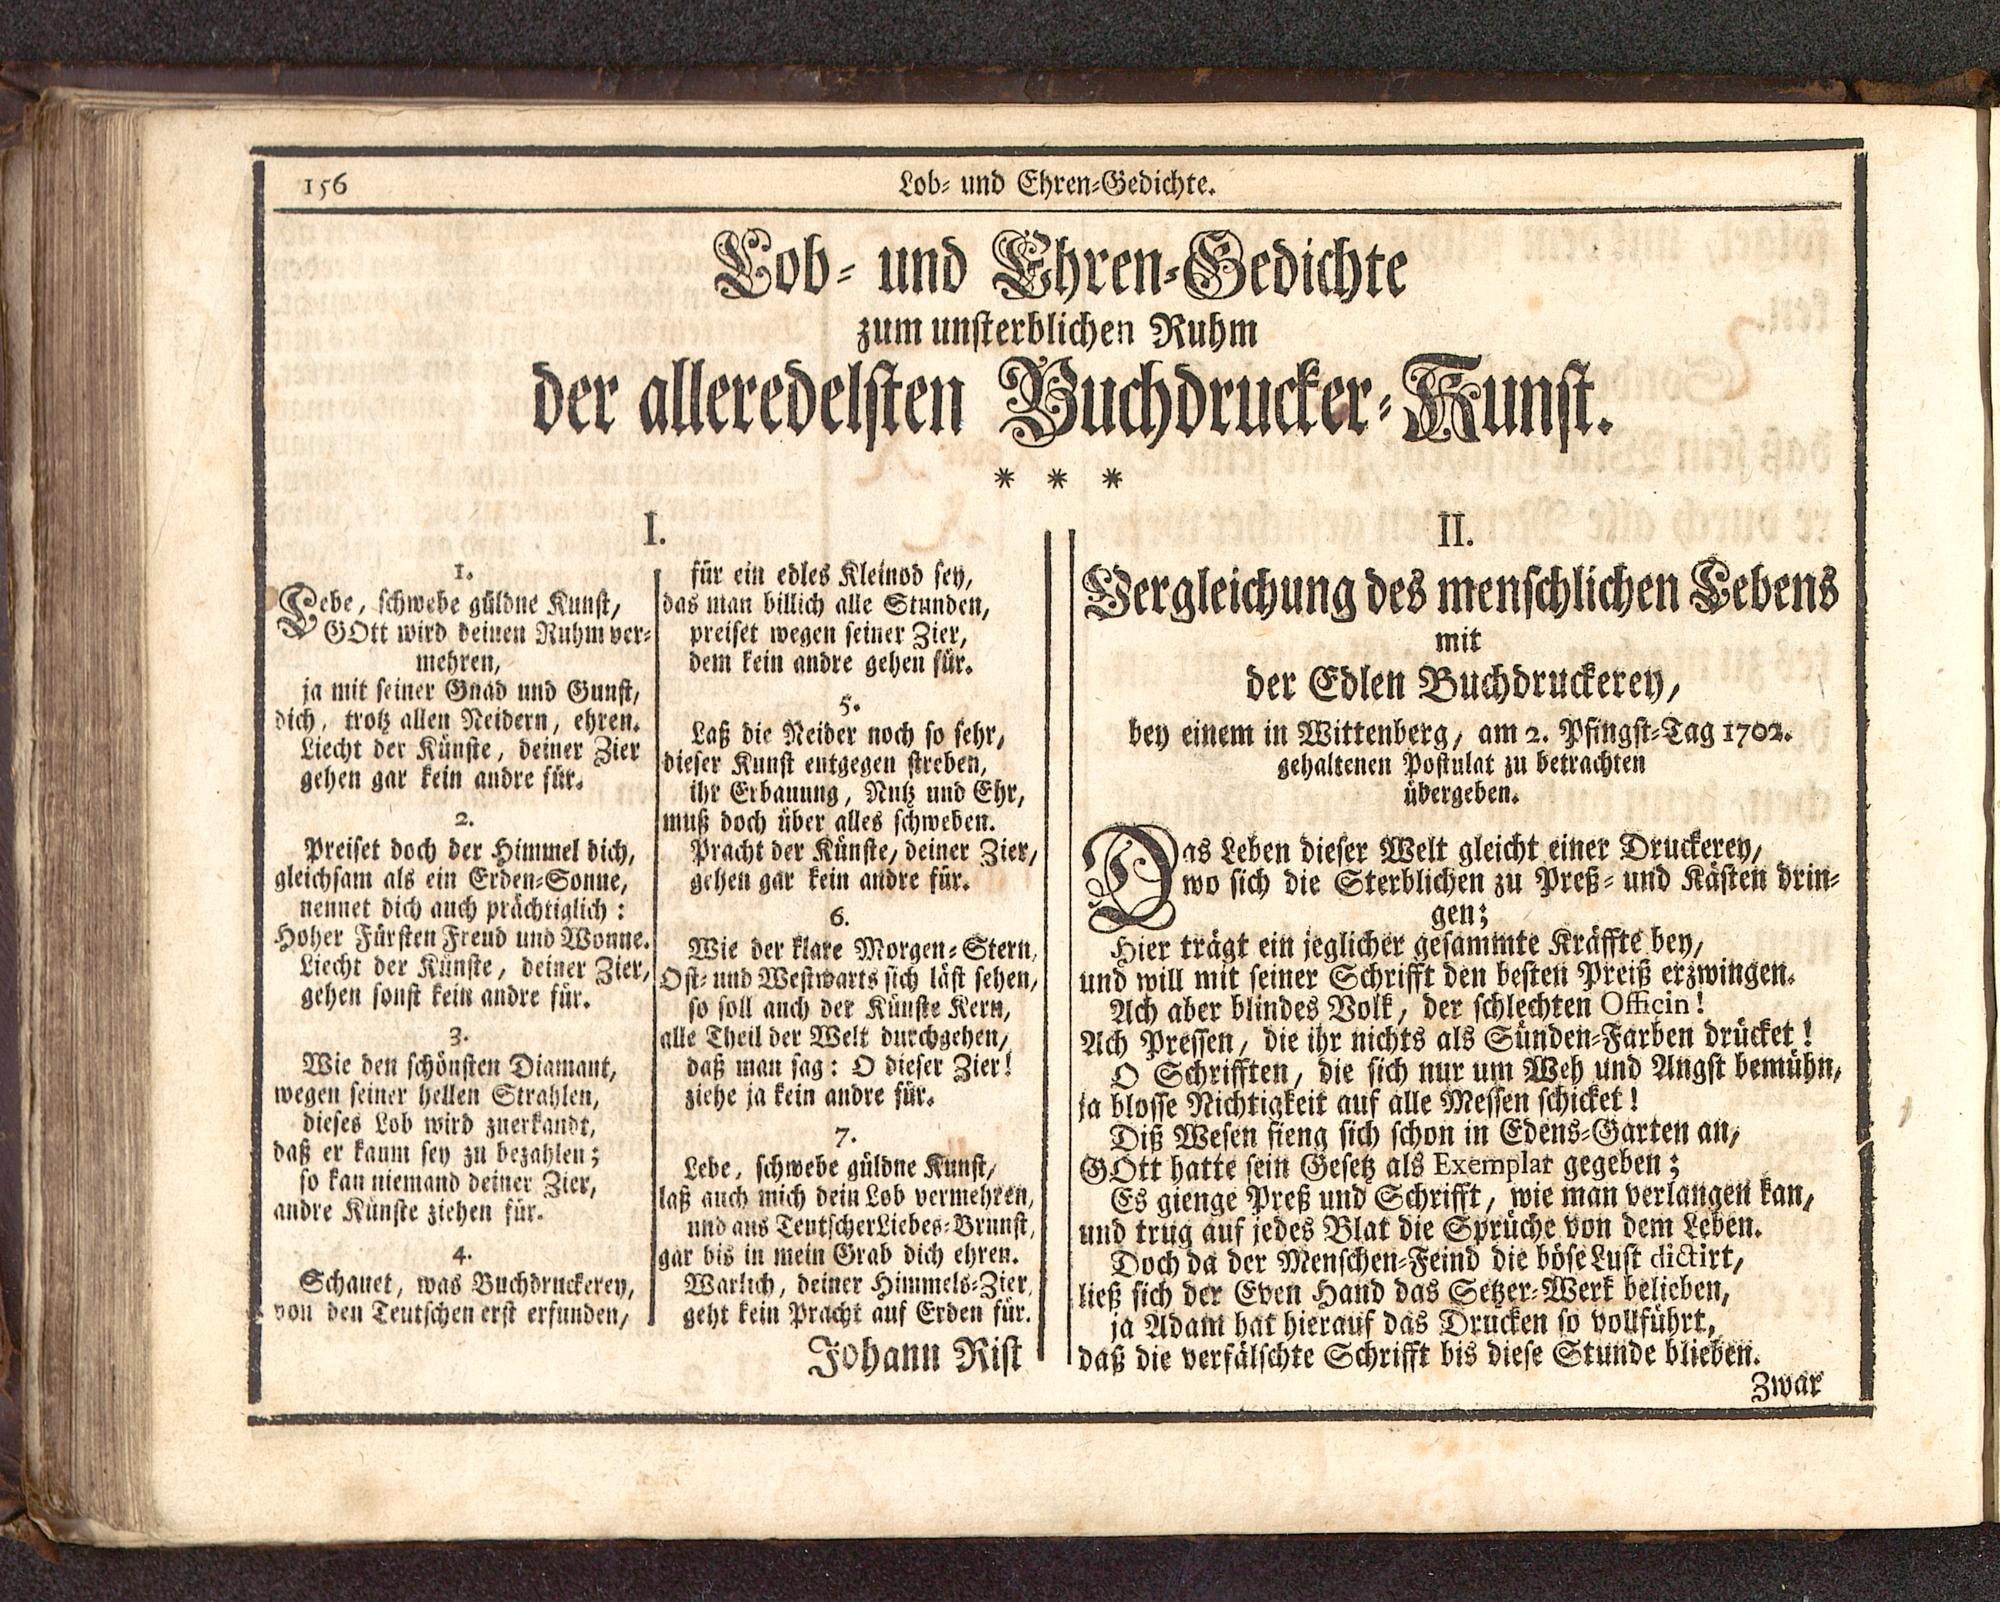 156
Lob- und Ehren-Gedichte.
Lob- und Ehren-Gedichte
zum unsterblichen Ruhm
der alleredelsten Buchdrucker-Kunst.
* * *
I.
1.
Lebe, schwebe güldne Kunst,
GOtt wird deinen Ruhm ver-
mehren,
ja mit seiner Gnad und Gunst,
dich, trotz allen Neidern, ehren.
Liecht der Künste, deiner Zier
gehen gar kein andre für.
2.
Preiset doch der Himmel dich,
gleichsam als ein Erden-Sonne,
nennet dich auch prächtiglich:
Hoher Fürsten Freud und Wonne.
Liecht der Künste, deiner Zier,
gehen sonst kein andre für.
3.
Wie den schönsten Diamant,
wegen seiner hellen Strahlen,
dieses Lob wird zuerkandt,
daß er kaum sey zu bezahlen;
so kan niemand deiner Zier,
andre Künste ziehen für.
4.
Schauet, was Buchdruckerey,
von den Teutschen erst erfunden,
für ein edles Kleinod sey,
das man billich alle Stunden,
preiset wegen seiner Zier,
dem kein andre gehen für.
5.
Laß die Neider noch so sehr,
dieser Kunst entgegen streben,
ihr Erbauung, Nutz und Ehr,
muß doch über alles schweben.
Pracht der Künste, deiner Zier,
gehen gar kein andre für.
6.
Wie der klare Morgen-Stern,
Ost- und Westwarts sich läst sehen,
so soll auch der Künste Kern,
alle Theil der Welt durchgehen,
daß man sag: O dieser Zier!
ziehe ja kein andre für.
7.
Lebe, schwebe güldne Kunst,
laß auch mich dein Lob vermehren,
und aus Teutscher Liebes-Brunst,
gar bis in mein Grab dich ehren.
Warlich, deiner Himmels-Zier,
geht kein Pracht auf Erden für.
Johann Rist
II.
Vergleichung des menschlichen Lebens
mit
der Edlen Buchdruckerey,
bey einem in Wittenberg, am 2. Pfingst-Tag 1702.
gehaltenen Postulat zu betrachten
übergeben.
Das Leben dieser Welt gleicht einer Druckerey,
wo sich die Sterblichen zu Preß- und Kästen drin-
gen;
Hier trägt ein jeglicher gesammte Kräffte bey,
und will mit seiner Schrifft den besten Preiß erzwingen.
Ach aber blindes Volk, der schlechten Officin!
Ach Pressen, die ihr nichts als Sünden-Farben drücket!
O Schrifften, die sich nur um Weh und Angst bemühn,
ja blosse Nichtigkeit auf alle Messen schicket!
Diß Wesen fieng sich schon in Edens-Garten an,
GOtt hatte sein Gesetz als Exemplar gegeben;
Es gienge Preß und Schrifft, wie man verlangen kan,
und trug auf jedes Blat die Sprüche von dem Leben.
Doch da der Menschen-Feind die böse Lust dictirt,
ließ sich der Even Hand das Setzer-Werk belieben,
ja Adam hat hierauf das Drucken so vollführt,
daß die verfälschte Schrifft bis diese Stunde blieben.
Zwar